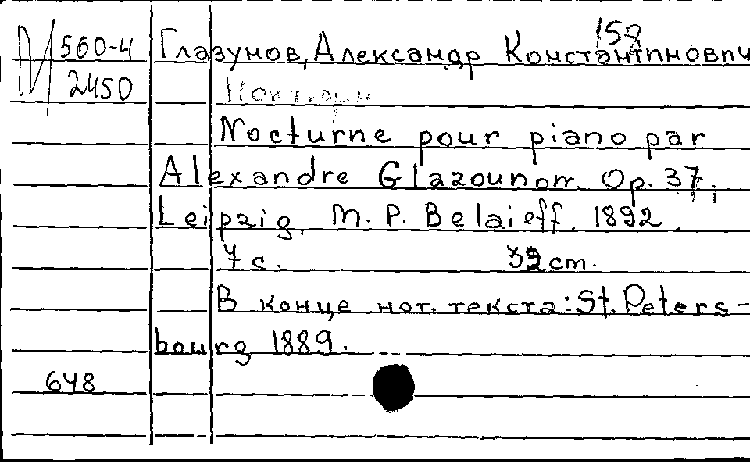 158
М 560-4 Глазунов, Александр Константинович
2450 Ноктюрн
Nocturne pour piano par
Alexandre Glazounow. Op. 37.
Leipzig. M. P. Belaieff. 1892.
7 с. 32 cm.
В конце нот. текста: St. Peters-
bourg 1889.
648